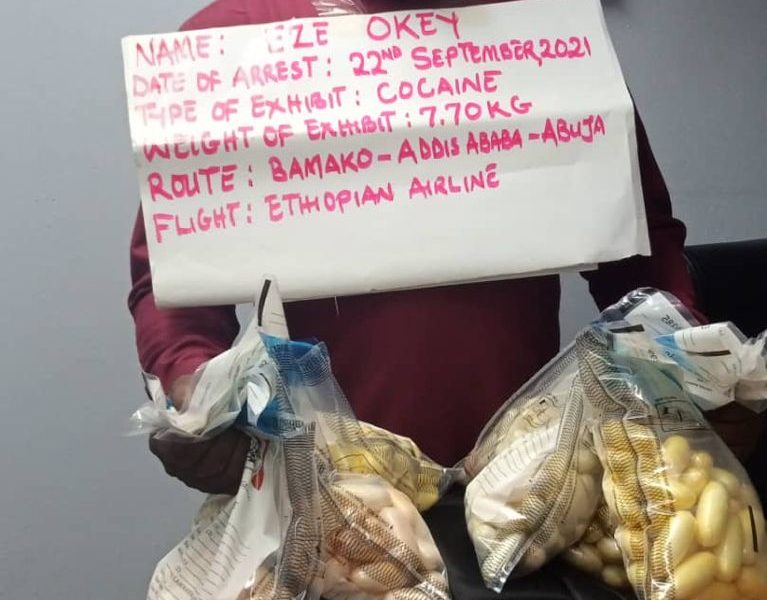 NAME: EZE OKEY
DATE OF ARREST: 22ND SEPTEMBER, 2021
TYPE OF EXHIBIT: COCAINE
WEIGHT OF EXHIBIT: 7.70KG
ROUTE: BAMAKO-ADDIS ABABA-ABUJA
FLIGHT: ETHIOPIAN AIRLINE